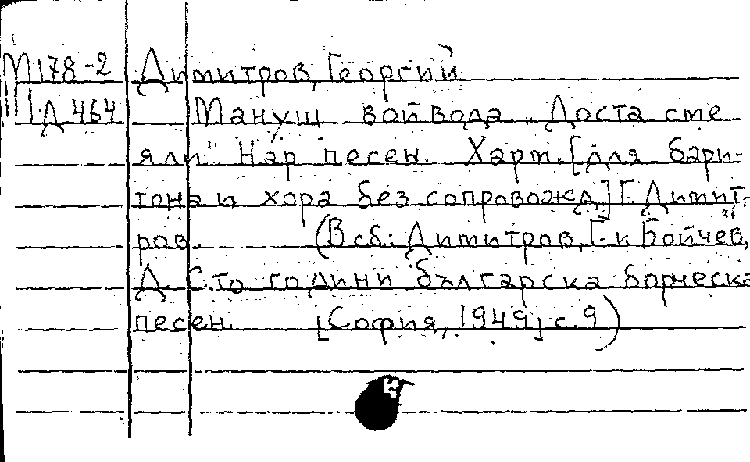 М178-2 Димитров, Георгий
Д 464 Мануш войвода „Доста сме
яли" Нар песен. Харм. [для бари-
тона и хора без сопровожд.] Г. Димит-
ров. (В сб.: Димитров, Г. и Бойчев,
Д. Сто години българска борческа
песен. [София, 1949] с. 9)